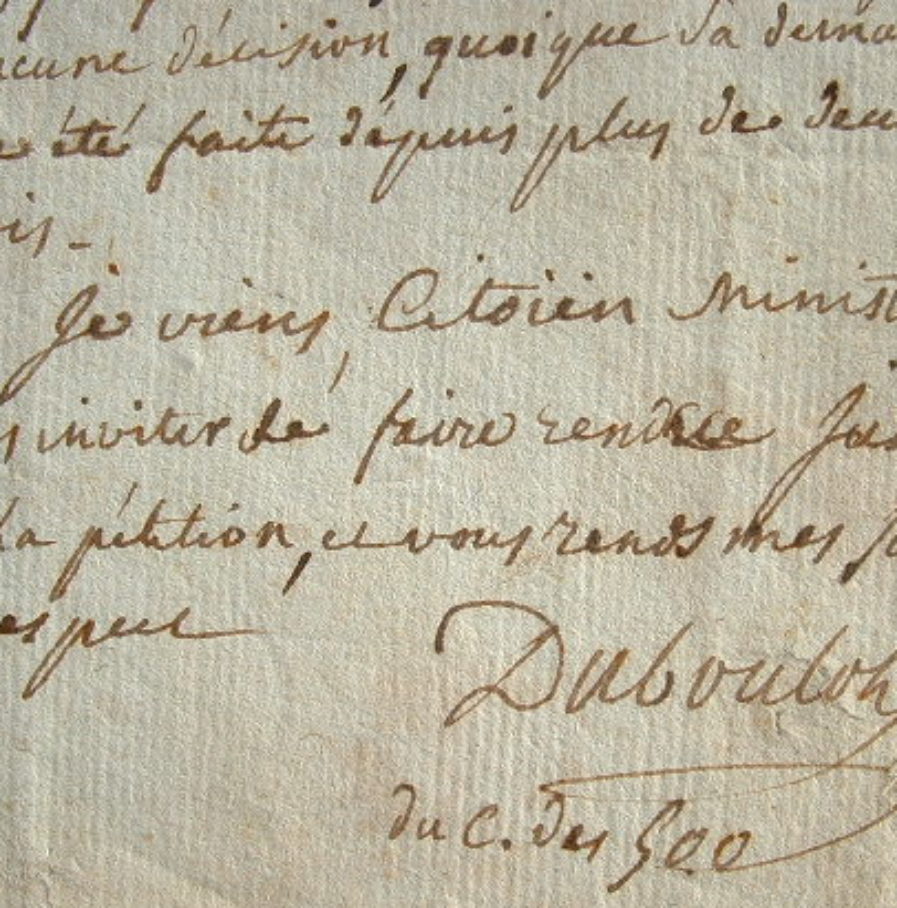 ucune décision, quoique sa dema
e été faite dépuis plus de deu
is -
Je viens, Citoien Minist
s inviter de faire rendre Jus
la pétition, et vous rends mes
espect
Duboulo
du C. des 500